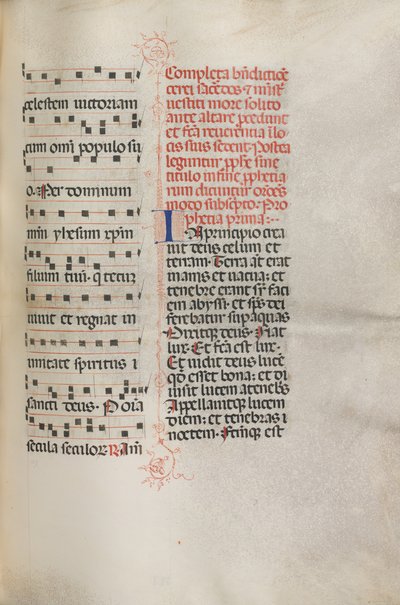 celestem uictoriam
cum om̄i populo su
o. Per dominum
nr̄m yhesum xp̄m
filium tuū. q̄ tecuʒ
uiuit et regnat in
unitate spiritus
sancti deus. P om̄ia
secula seculoꝝ. R Am̄
Completa bn̄dictiōe
cerei sac̄dos ⁊ mīst̄
uestiti more solito
ante altare p̄cedunt
et fc̄a reuerentia ī lo
cis suis sedent. Postea
leguntur ꝓph̄e sine
titulo in fine ꝓphetia
rum dicuntur or̄ōes
modo subscpto. Pro
phetia prima:
IN principio crea
uit deus celum et
terram. Terra aūt erat
inanis et uacua: et
tenebre erant sr̄ faci
em abyssi. et sp̄s dei
ferebatur sup̄ aquas
Dixitqʒ deus. Fiat
lux. Et fc̄a est lux.
Et uidit deus lucē
qd̄ esset bona: et di
uisit lucem a tenebꝭ
Appellauitqʒ lucem
diem: et tenebras
noctem. Fcūmqʒ est